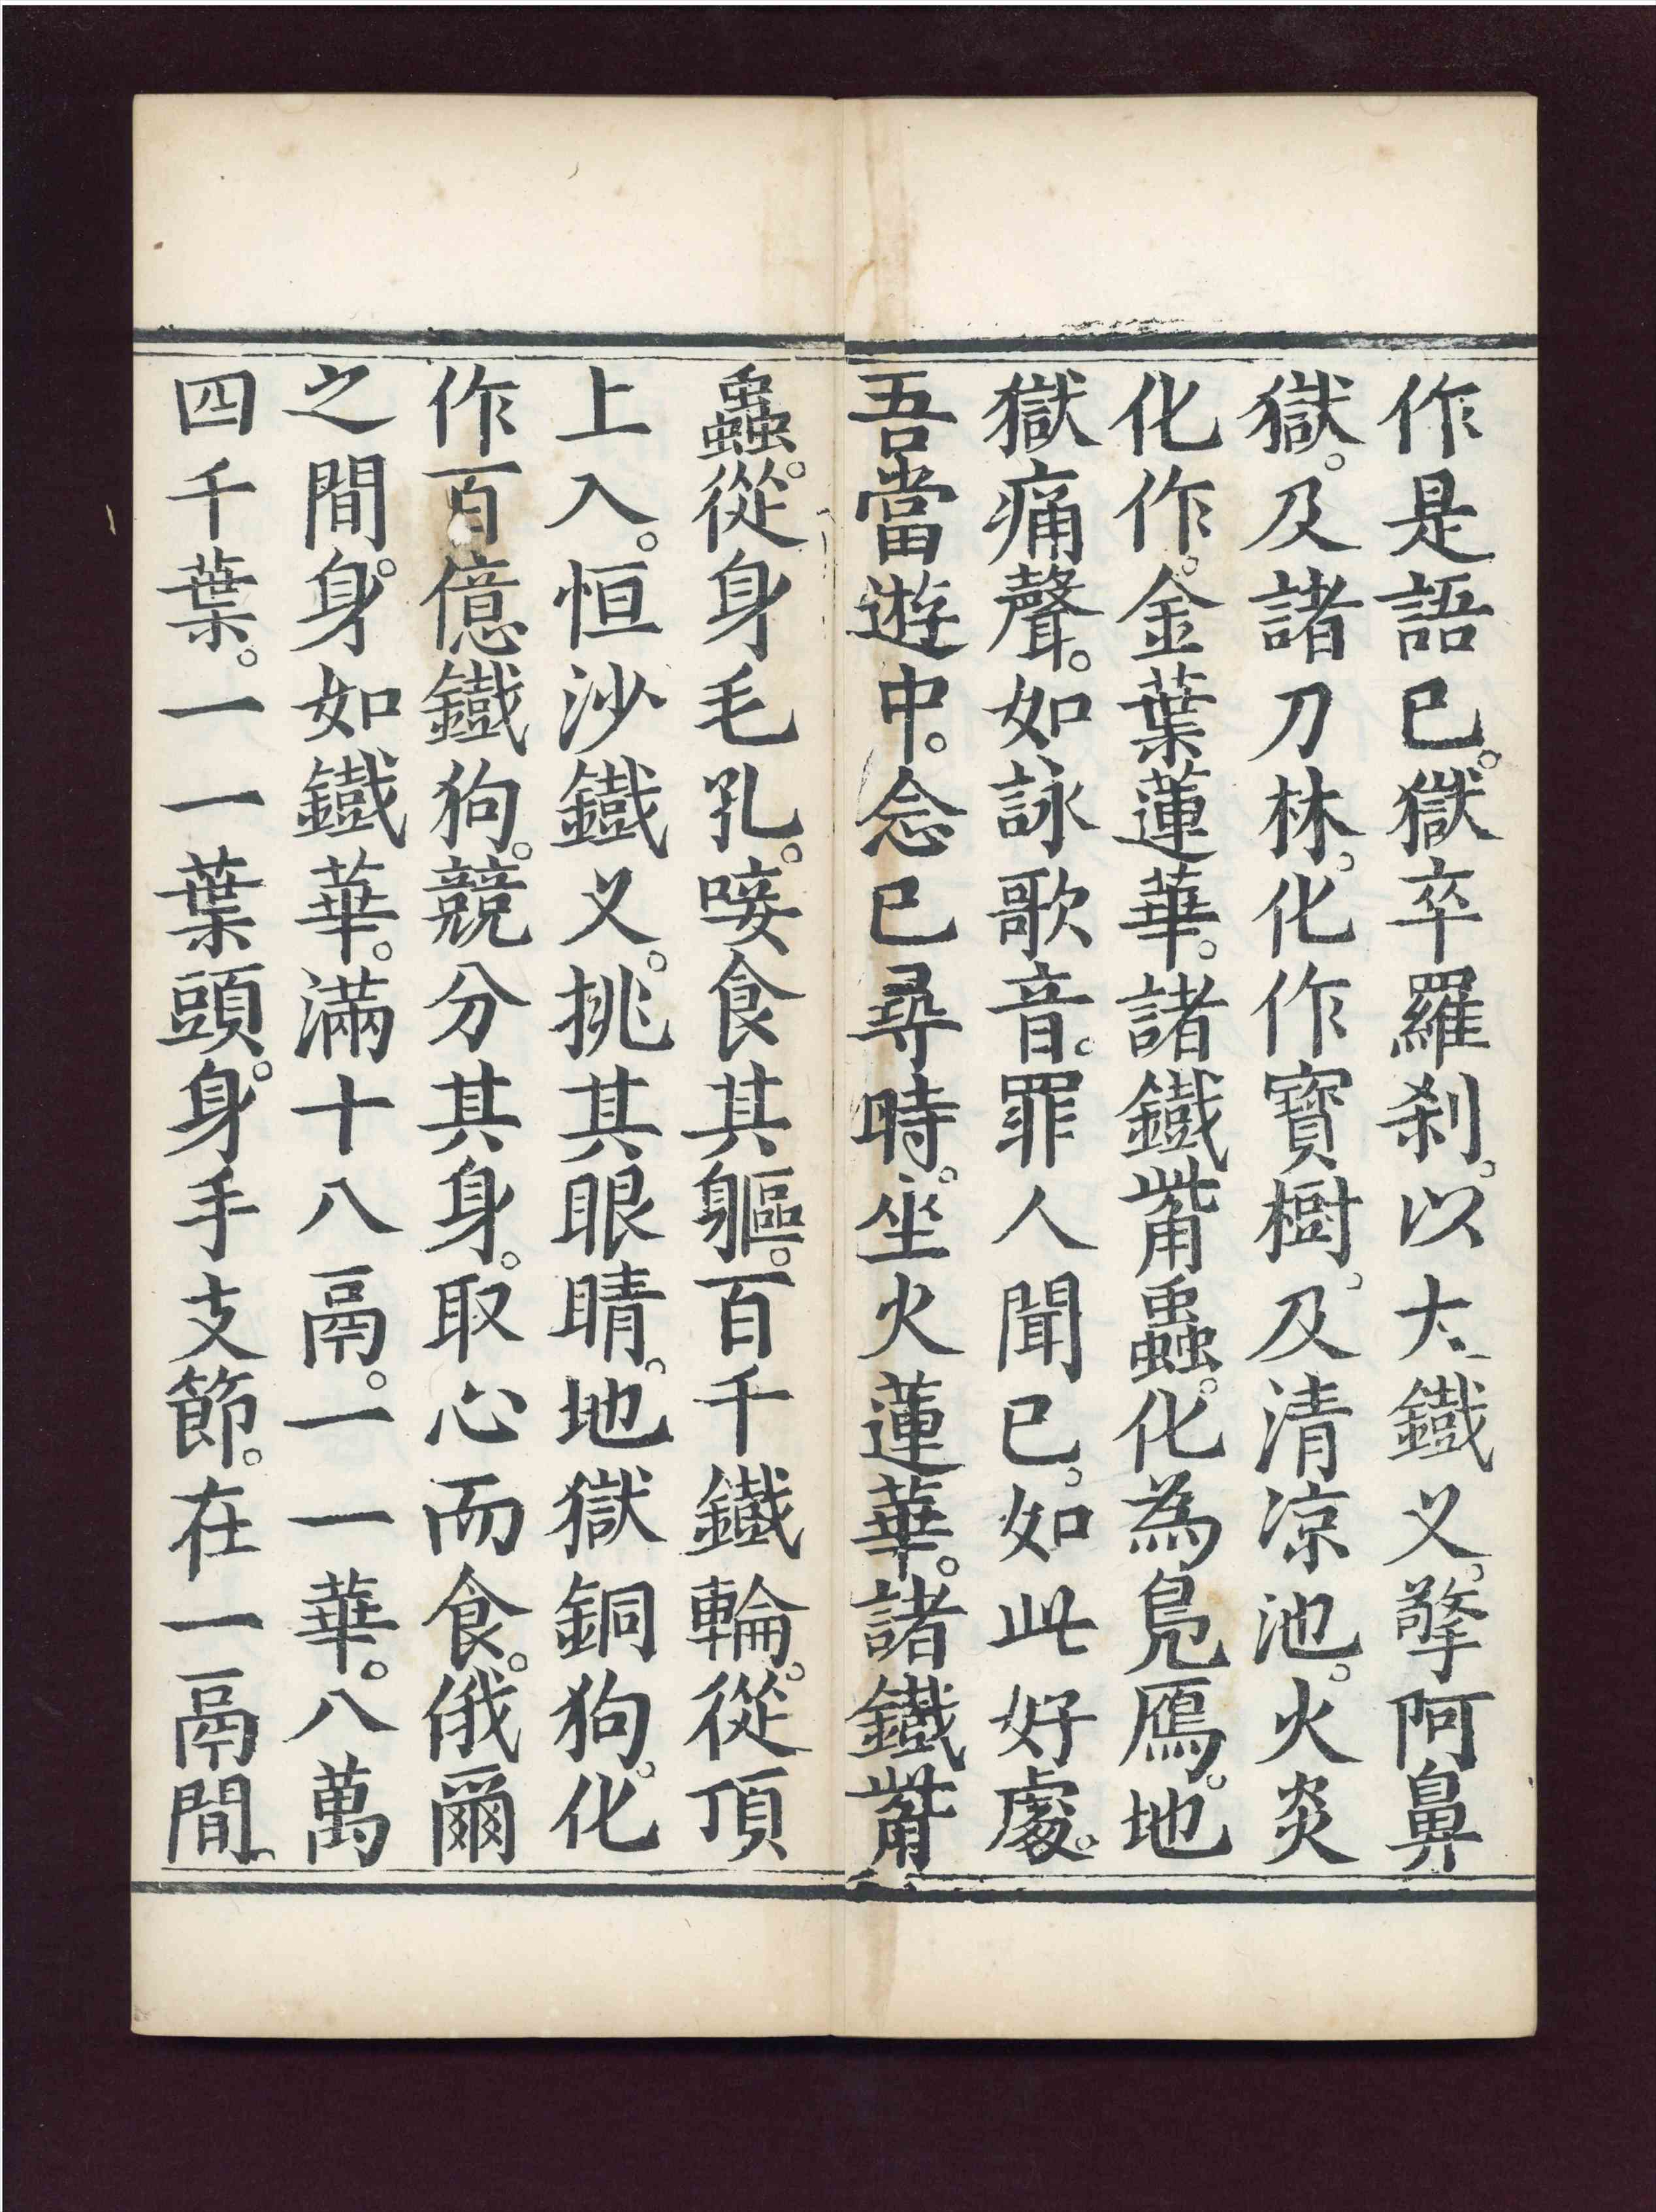 作是語已。獄卒羅刹。以大鐵叉。擎阿鼻
獄。及諸刀林。化作寶樹。及清凉池。火炎
化作。金葉蓮華。諸鐵觜蟲。化為鳧鴈。地
獄痛聲。如詠歌音。罪人聞已。如此好處。
吾當遊中。念已尋時。坐火蓮華。諸鐵觜
蟲。從身毛孔。唼食其軀。百千鐵輪。從頂
上入。恒沙鐵叉。挑其眼睛。地獄銅狗。化
作百億鐵狗。競分其身。取心而食。俄爾
之間。身如鐵華。滿十八鬲。一一華。八萬
四千葉。一一葉頭。身手支節。在一鬲間